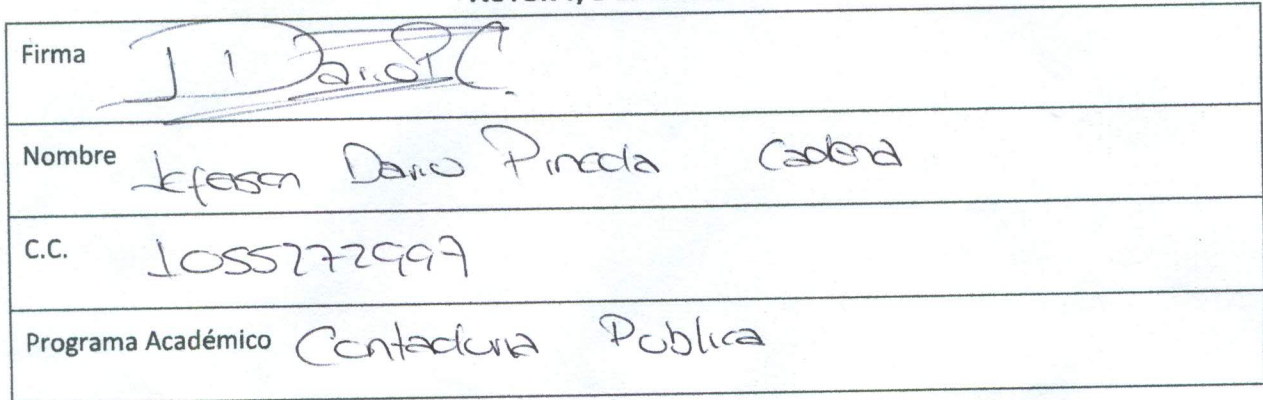 Firma J Dario P C.
Nombre Jeferson Dario Pineda Cadena
C.C. 1055272997
Programa Académico Contaduria Publica